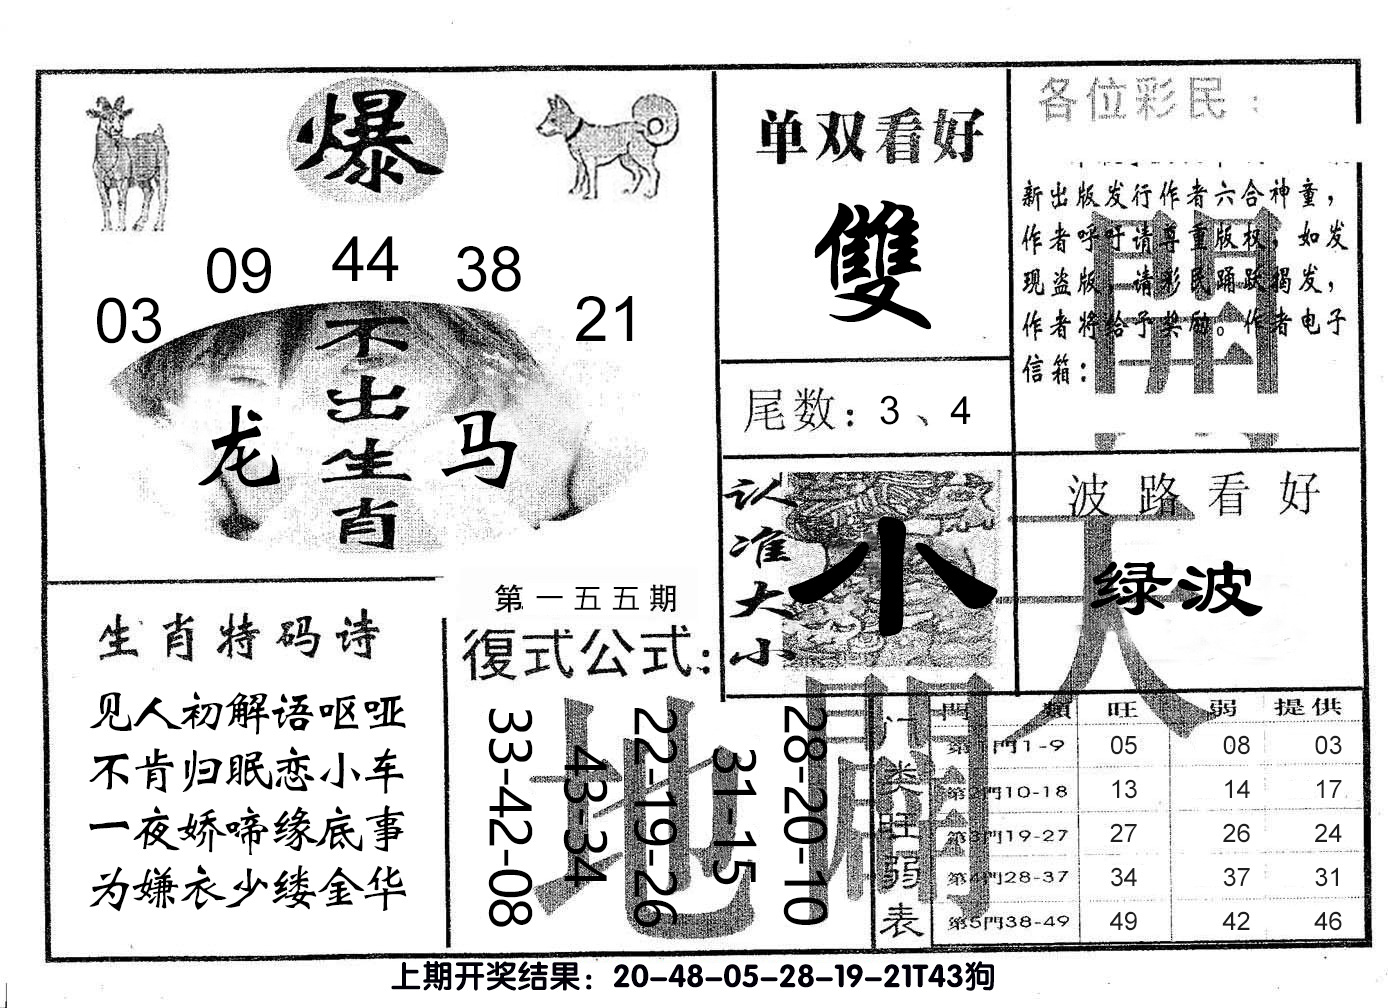 爆
09 44 38
03 21
不出生肖
龙 马
单双看好
雙
尾数：3、4
各位彩民：
新出版发行作者六合神童，
作者呼吁请尊重版权，如发
现盗版，请彩民踊跃揭发，
作者将给予奖励。作者电子
信箱：
開
认准大小
小
波路看好
绿波
天
生肖特码诗
见人初解语呕哑
不肯归眠恋小车
一夜娇啼缘底事
为嫌衣少缕金华
第一五五期
復式公式：
33-42-08
43-34
22-19-26
31-15
28-20-10
地
門類 旺 弱 提供
门类旺弱表
第1門1-9 05 08 03
第2門10-18 13 14 17
第3門19-27 27 26 24
第4門28-37 34 37 31
第5門38-49 49 42 46
上期开奖结果：20-48-05-28-19-21T43狗